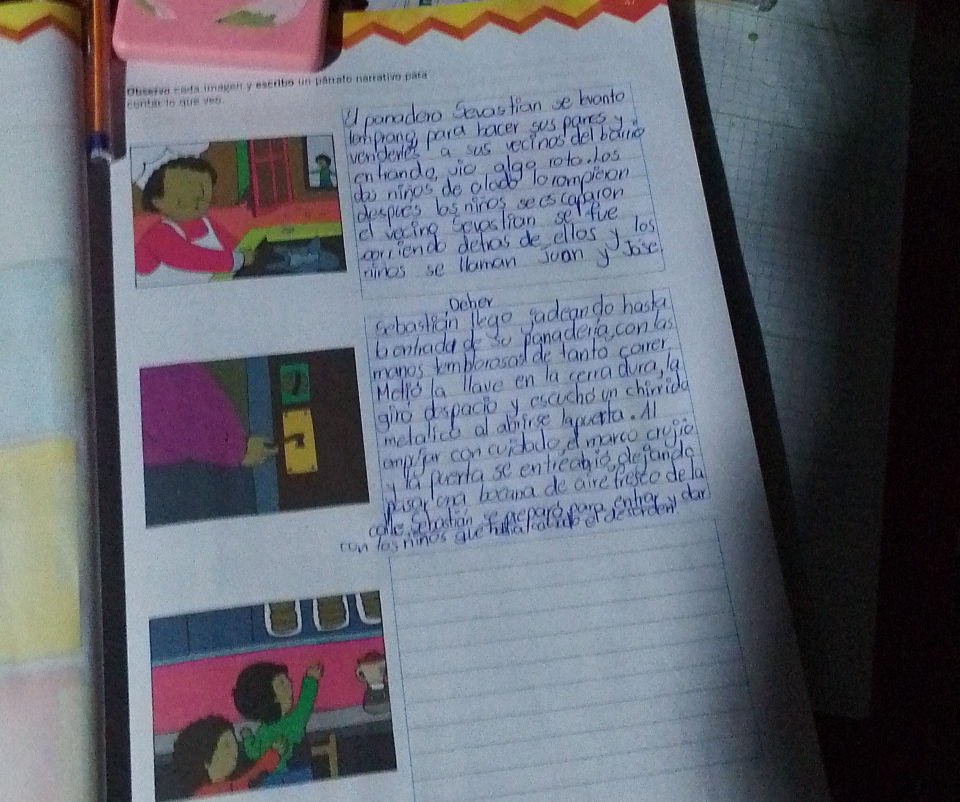 Observo cada imagen y escribo un párrafo narrativo para
contar lo que veo.
El panadero Sevastian se levanto
temprano para hacer sus panes y
venderles a sus vecinos del barrio
entrando vio algo roto. Los
dos niños de alado lo rompieron
despues los niños se escaparon
el vecino Sevastian se fue
corriendo detras de ellos y los
niños se llaman Juan y Jose
Deber
Sebastián llego jadeando hasta
la entrada de su panadería, con las
manos temblorosas de tanto correr.
Metió la llave en la cerradura, la
giró despacio y escuchó un chirrido
metalico al abrirse la puerta. Al
con cuidado, el marco crujió
y la puerta se entreabrió, dejando
pasar una de aire fresco de la
calle. Sebastián se preparó para entrar y dar
con los niños que el desorden